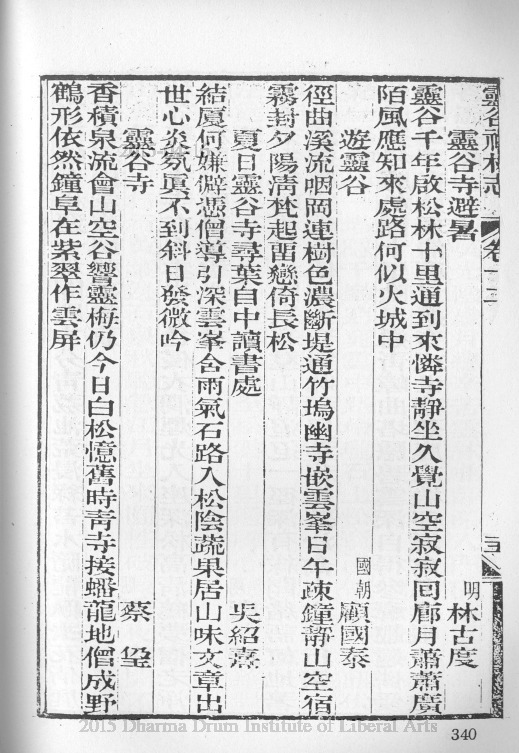 靈谷禪林志 卷十三
靈谷寺避暑 明 林古度
靈谷千年啟松林十里通到來憐寺靜坐久覺山空寂寂回廊月蕭蕭廣
陌風應知來處路何似火城中
遊靈谷 國朝 顧國泰
徑曲溪流咽岡連樹色濃斷堤通竹塢幽寺嵌雲峯日午疎鐘靜山空宿
霧封夕陽淸梵起畱戀倚長松
夏日靈谷寺尋葉自中讀書處 吳紹熹
結厦何嫌僻憑僧導引深雲峯含雨氣石路入松陰蔬果居山味文章出
世心炎氛眞不到斜日發微吟
靈谷寺 蔡
香積泉流會山空谷響靈梅仍今日白松憶舊時靑寺接蟠龍地僧成野
鶴形依然鐘阜在紫翠作雲屏
2015 Dharma Drum Institute of Liberal Arts
340